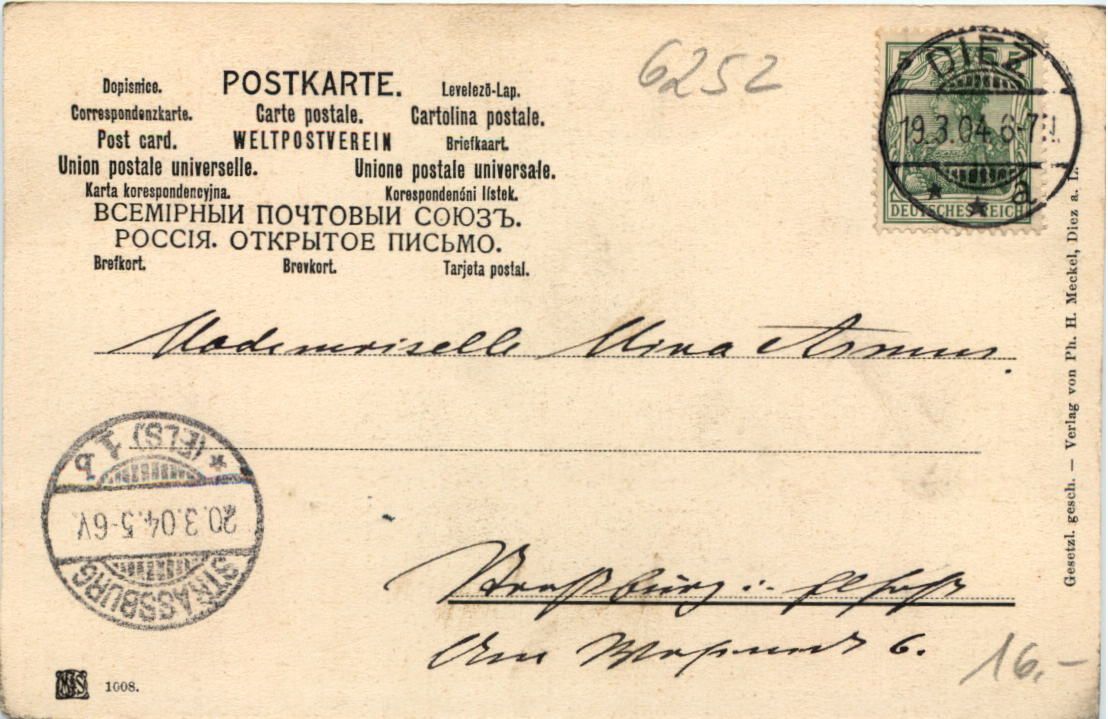 6252
POSTKARTE.
Dopisnice. Levelező-Lap.
Correspondenzkarte. Carte postale. Cartolina postale.
Post card. WELTPOSTVEREIN Briefkaart.
Union postale universelle. Unione postale universale.
Karta korespondencyjna. Korespondenóni lístek.
ВСЕМІРНЫИ ПОЧТОВЫИ СОЮЗЪ.
РОССІЯ. ОТКРЫТОЕ ПИСЬМО.
Brefkort. Brevkort. Tarjeta postal.
DIEZ
19.3.04. 6-7N
a
DEUTSCHES REICH
Mademoiselle Mina
STRASSBURG
20.3.04. 5-6V.
* (ELS) 1 b
Straßburg i. Elsaß
Am 6.
16.-
Gesetzl. gesch. — Verlag von Ph. H. Meckel, Diez a. L.
1008.